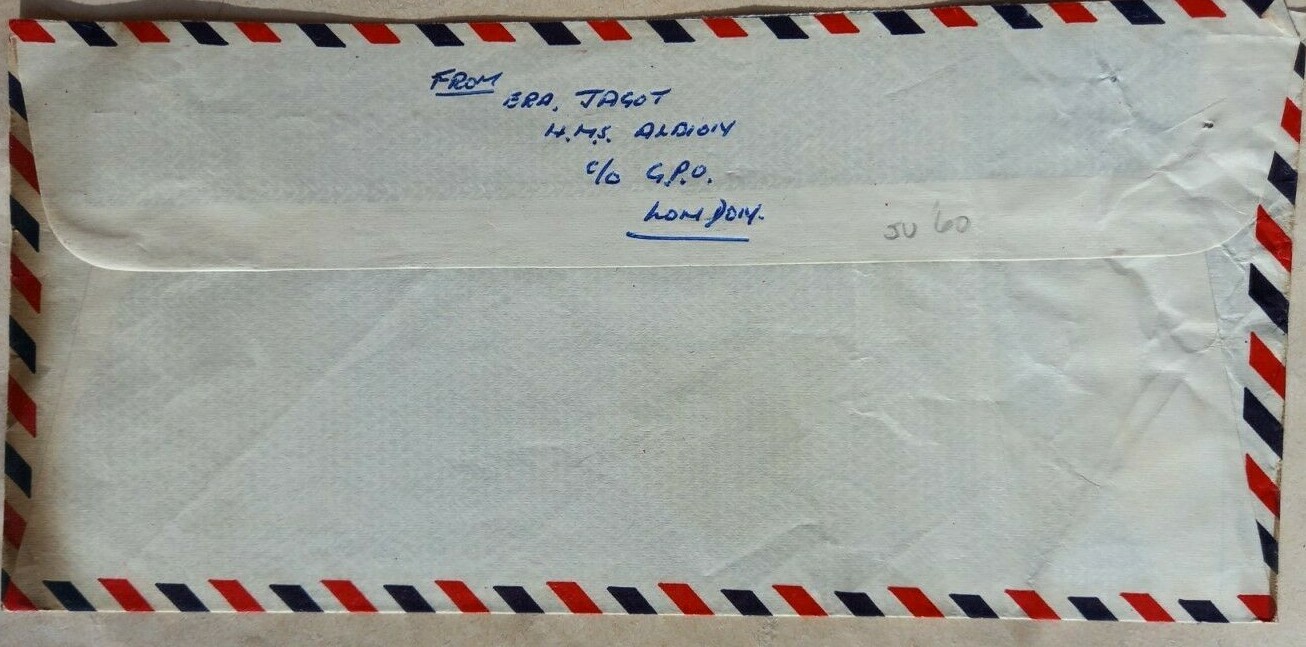 FROM
ERA. JAGOT
H.M.S. ALBION
c/o G.P.O.
LONDON.
JU 60